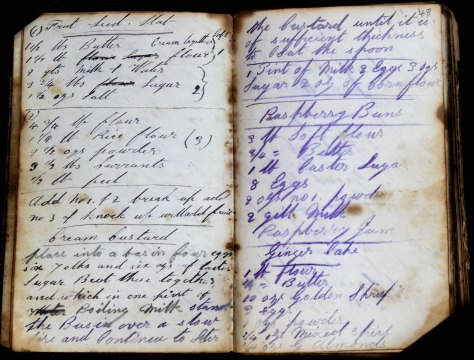 (1) Fruit Seed
lbs Butter Cream together
lb flour
Milk & Water
3 3/4 lbs Sugar 2
1 1/2 ogs Salt
(2)
4 3/4 lb flour
lb Rice flour (3)
ogs powder
lbs currants
lb peel
Add no 1 & 2 break up add
no 3 & knock up
Cream Custard
place into a basin four eggs
six yolks and six ogs of Caster
Sugar Beat these together
and which in one pint of
Boiling Milk stand
the Basin over a slow
fire and Continue to Stir
48
the Custard until it is
of sufficient thickness
to coat the spoon
1 Pint of Milk 2 Eggs 3 ogs
Sugar 2 og of Cornflour
Raspberry Buns
3 lb Soft flour
3/4 " Butter
1 lb Caster Sugar
8 Eggs
2 ogs no 1 powder
2 gills Milk
Raspberry Jam
Ginger Cake
1 lb flour
3/4 " Butter
10 ogs Golden Syrup
Eggs
powder
ogs Mixed spice